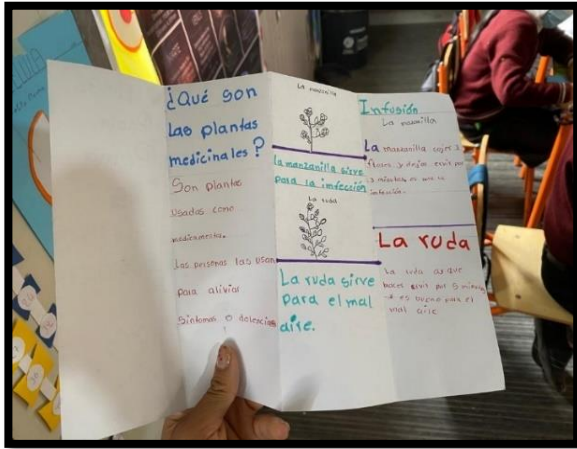 ¿Qué son
las plantas
medicinales?
Son plantas
usadas como
medicamento.
Las personas las usan
para aliviar
Sintomas o dolencias
La manzanilla
la manzanilla sirve
para la imfección
La ruda
La ruda sirve
para el mal
aire.
Infusión
La manzanilla
La manzanilla cojes 3
flores y dejas ervir por
3 minutos
La ruda
La ruda as que
haces ervir por 5 minutos
es bueno para el
mal aire